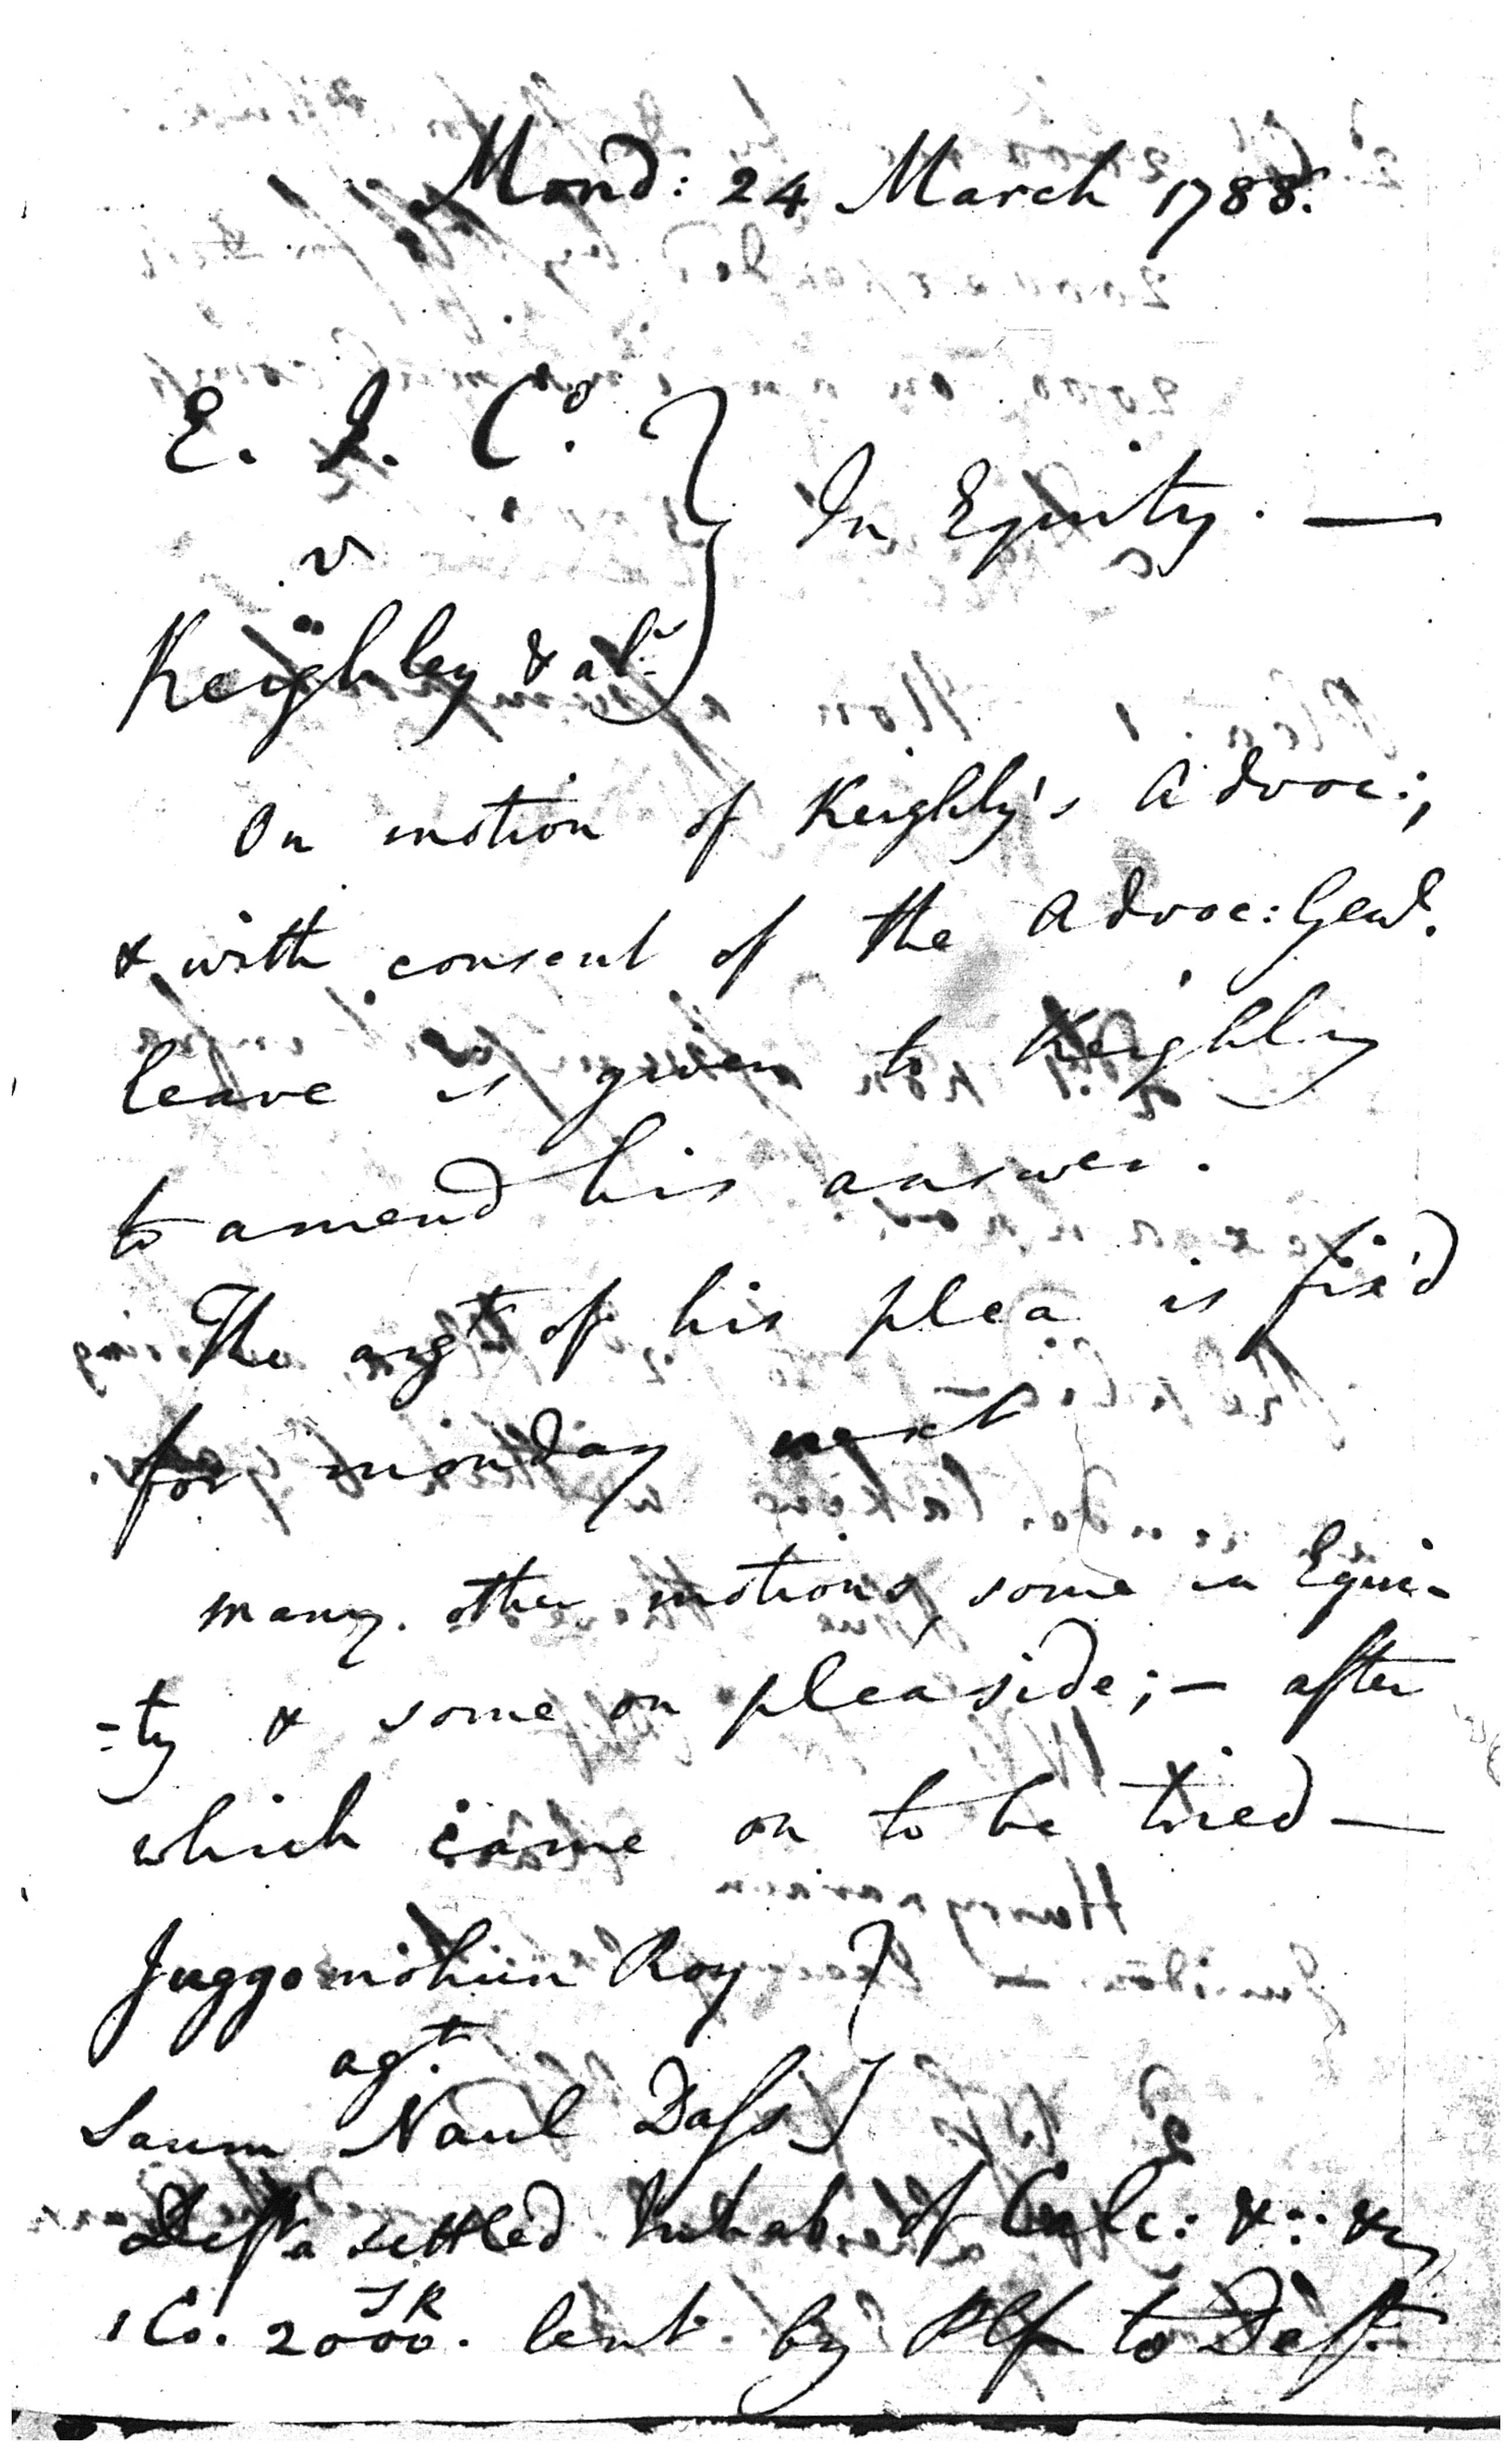 Mond: 24 March 1788.
E. I. Co.
v
Keighley & al
In Equity. —
On motion of Keighly's Advoc:,
& with consent of the Advoc: Genl.
leave is given to Keighley
to amend his answer.
The argt of his plea is fix'd
for monday next
many other motions, some in Equi-
-ty & some on pleaside; — after
which came on to be tried —
Juggomohun Roy
agt.
Saum Naul Dass
Deft a settled Inhab: of Calc: &: &c
1 Co. 2000 SR. lent by Plf to Deft.